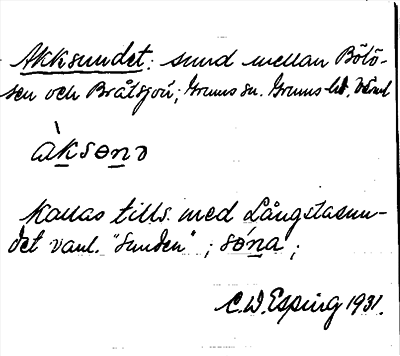 Akksundet: sund mellan Bötö-
sen och Bråtsjön; Grums sn. Grums hd, Värml
àksɵnd
Kallas tills. med Långstasun-
det vanl. "Sunden"; sɵ́na;
C.W. Esping 1931.